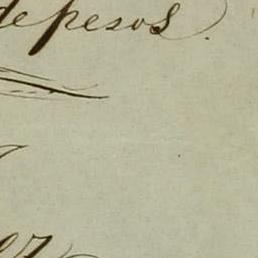 de pesos.